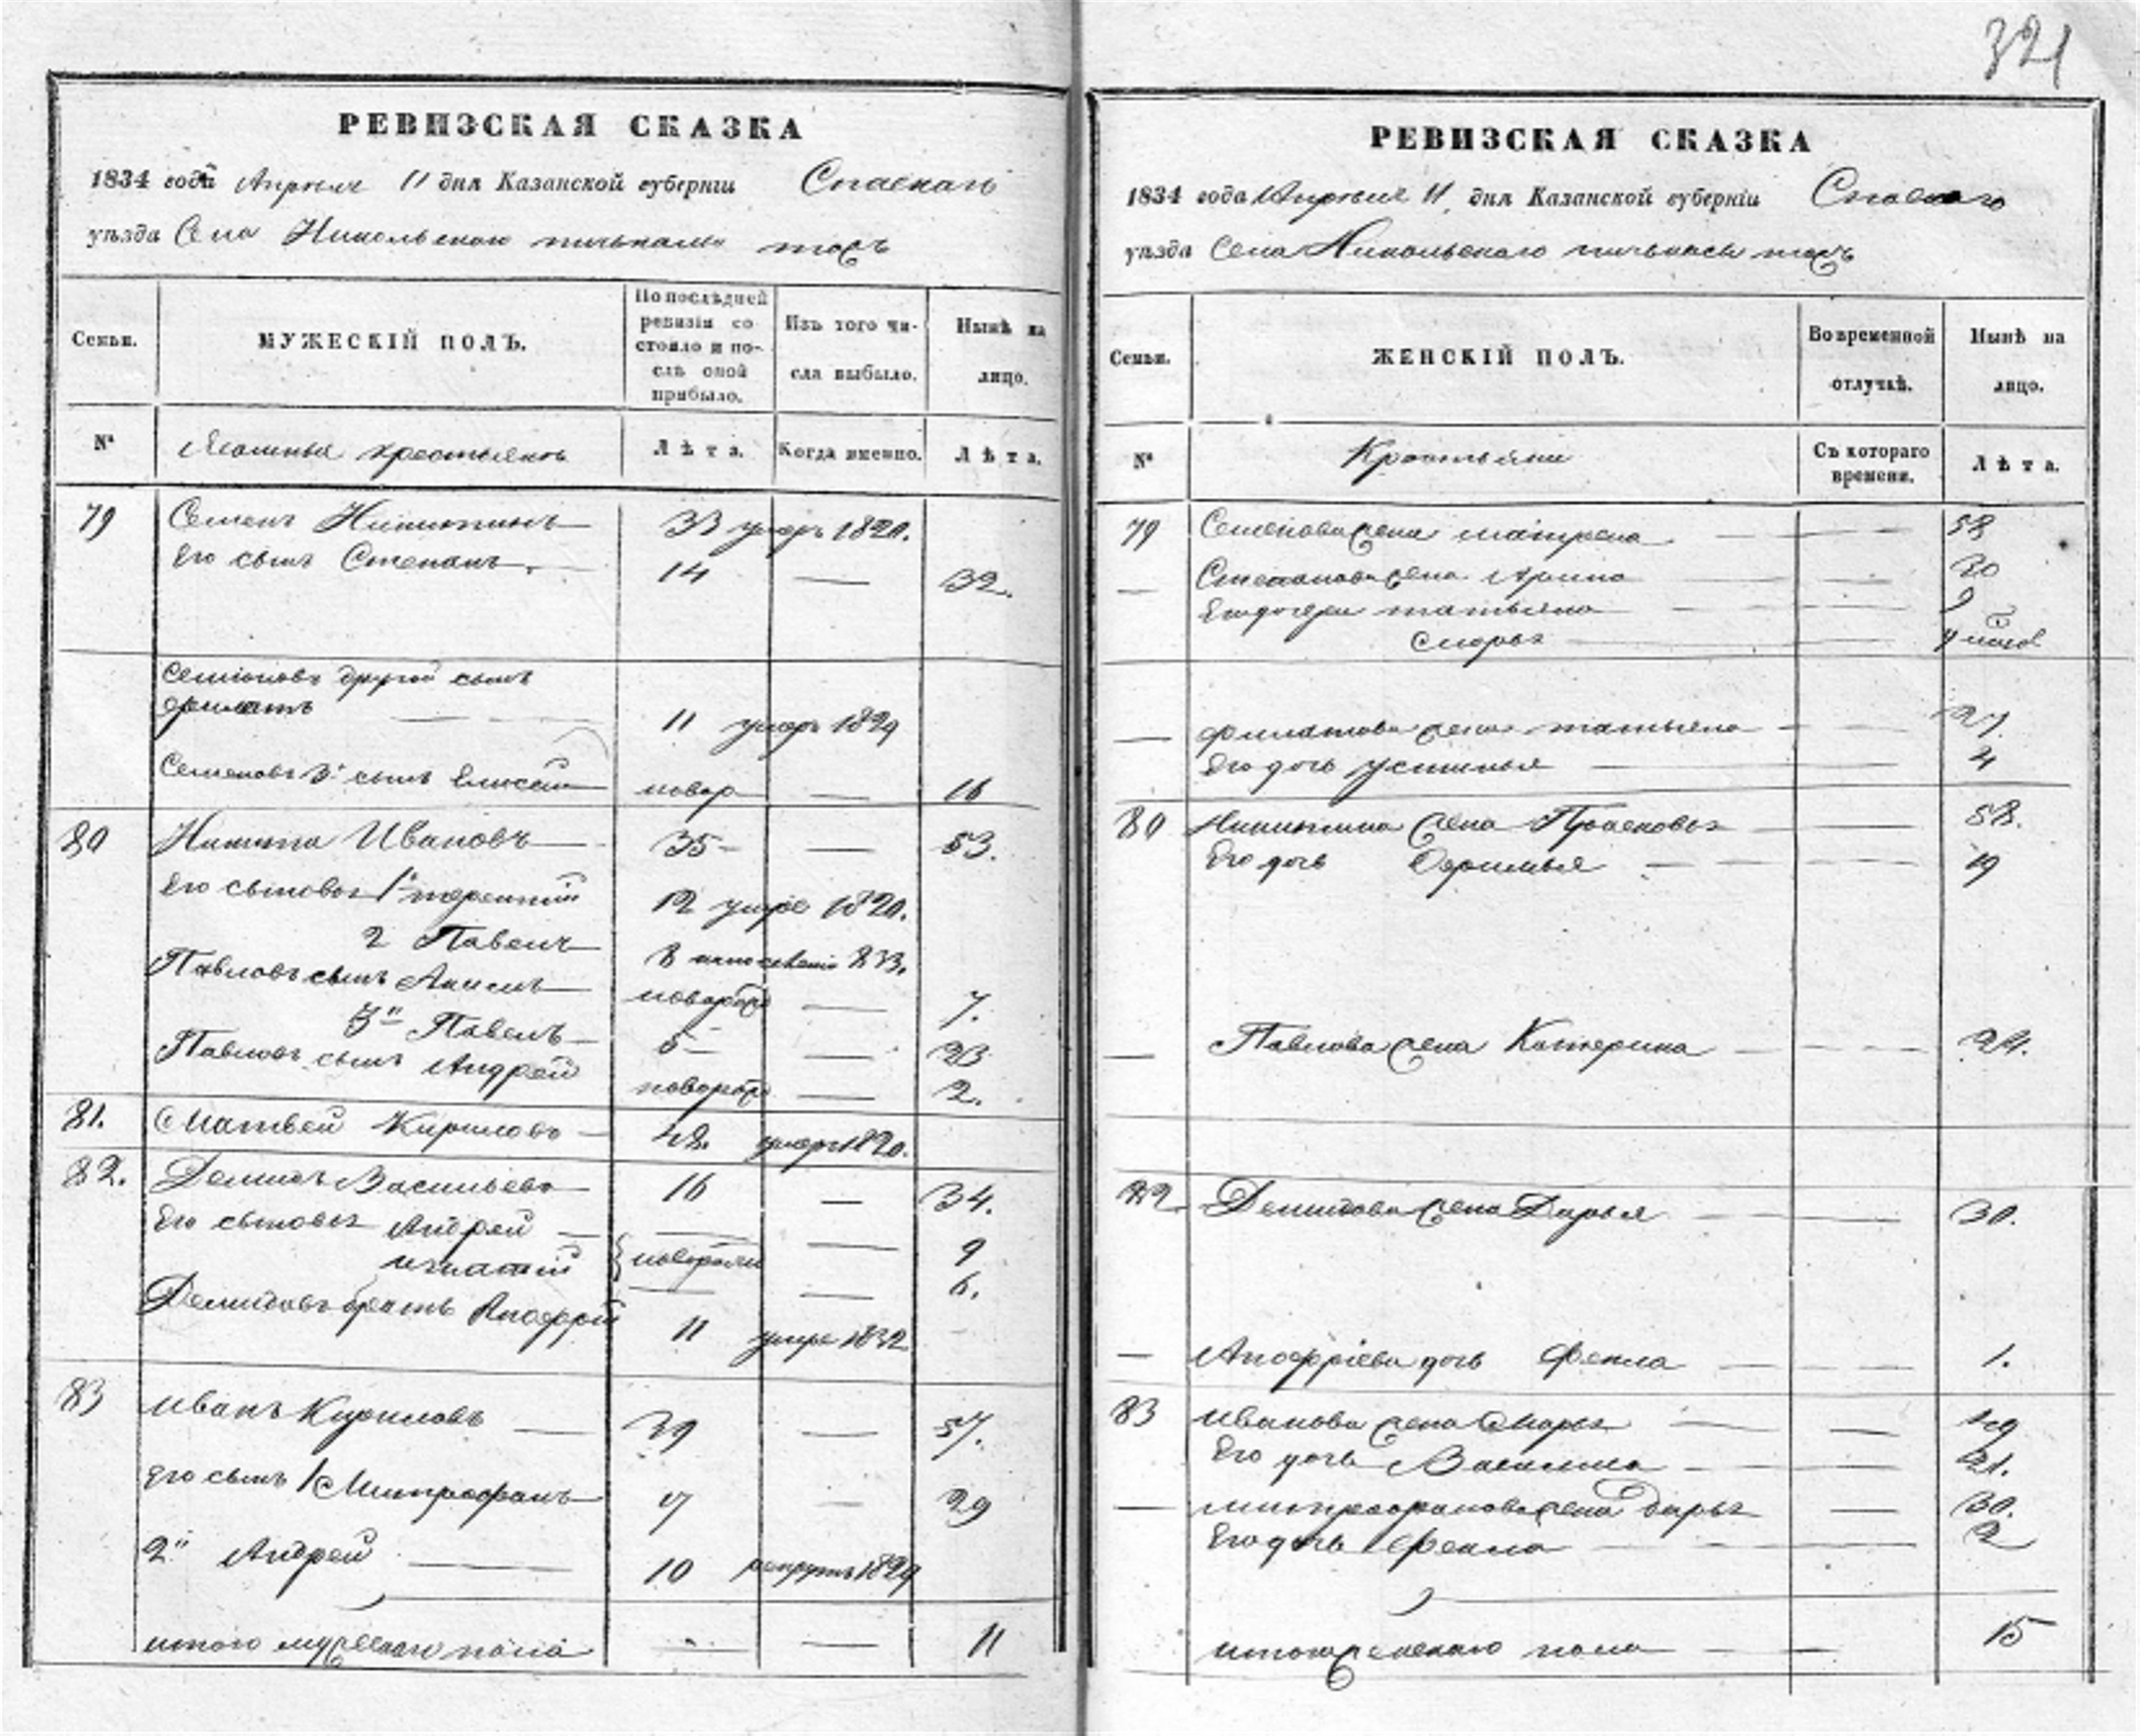 321
РЕВИЗСКАЯ СКАЗКА
1834 года Апреля 11 дня Казанской губерніи Спаскаго
уѣзда Села Никольскаго тожъ
Семьи.
МУЖЕСКІЙ ПОЛЪ.
По послѣдней ревизіи состояло и послѣ оной прибыло.
Изъ того числа выбыло.
Нынѣ на лицо.
№
крестьянъ
Лѣта.
Когда именно.
Лѣта.
79 Семенъ Никитинъ 33 умеръ 1820.
Его сынъ Степанъ 14 — 32.
Семіоновъ другой сынъ
Филатъ 11 умеръ 1829
Семеновъ 3й сынъ Елисей новор — 16
80 Никита Ивановъ 35 — 53.
Его сыновья 1й терентий 12 умре 1820.
2 Павелъ 8 833.
Павловъ сынъ Акимъ новорож — 7.
3й Павелъ 5 — 23
Павловъ сынъ Андрей новорож — 2.
81. Матвей Кириловъ 42. умеръ 1820.
82. Демидъ Васильевъ 16 — 34.
Его сыновья Андрей — 9
игнатій новорожд — 6.
Демидовъ братъ Аноффрій 11 умре 1832
83 Иванъ Кириловъ 39 — 57.
Его сынъ 1 Митрофанъ 17 — 29
2й Андрей 10 рекрутъ 1829
итого мужескаго пола — — 11
РЕВИЗСКАЯ СКАЗКА
1834 года Апреля 11 дня Казанской губерніи Спаскаго
уѣзда Села Никольскаго тожъ
Семьи.
ЖЕНСКІЙ ПОЛЪ.
Во временной отлучкѣ.
Нынѣ на лицо.
№
Съ котораго времени.
Лѣта.
79 Семенова жена матрена — — 58
— Степанова жена Арина 30
Его дочери татьяна 9
— Филатова жена татьяна — — 27.
Его дочь Устинья — — 4
80 Никитина жена Прасковья — 58.
Его дочь Офимья — — 19
— Павлова жена Катерина — — 24.
82 Демидова жена Дарья — — 30.
— Аноффріева дочь Фекла — — 1.
83 Иванова жена Марья — —
Его дочь Василиса — — 21.
— митрофанова жена дарья — 30.
Его дочь Фекла — — 2
итого женскаго пола — — 15